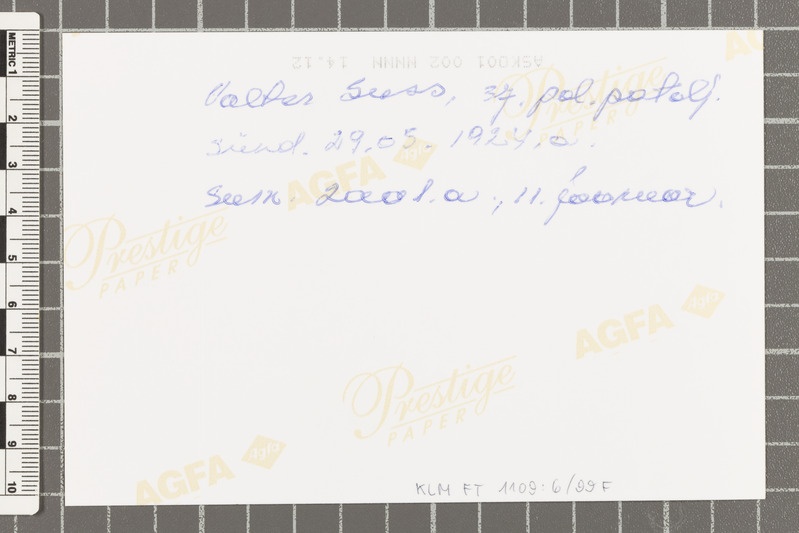 ASK001 002 NNNN 14.12
Valter Suss, 37. pol. patalj.
sünd. 29.05. 1924.a.
Surn. 2001.a., 11. jaanuar.
Prestige
PAPER
AGFA
AGFA
Prestige
PAPER
AGFA
AGFA
Prestige
PAPER
AGFA
AGFA
KLM FT 1109:6/99 F
METRIC 1
2
3
4
5
6
7
8
9
10